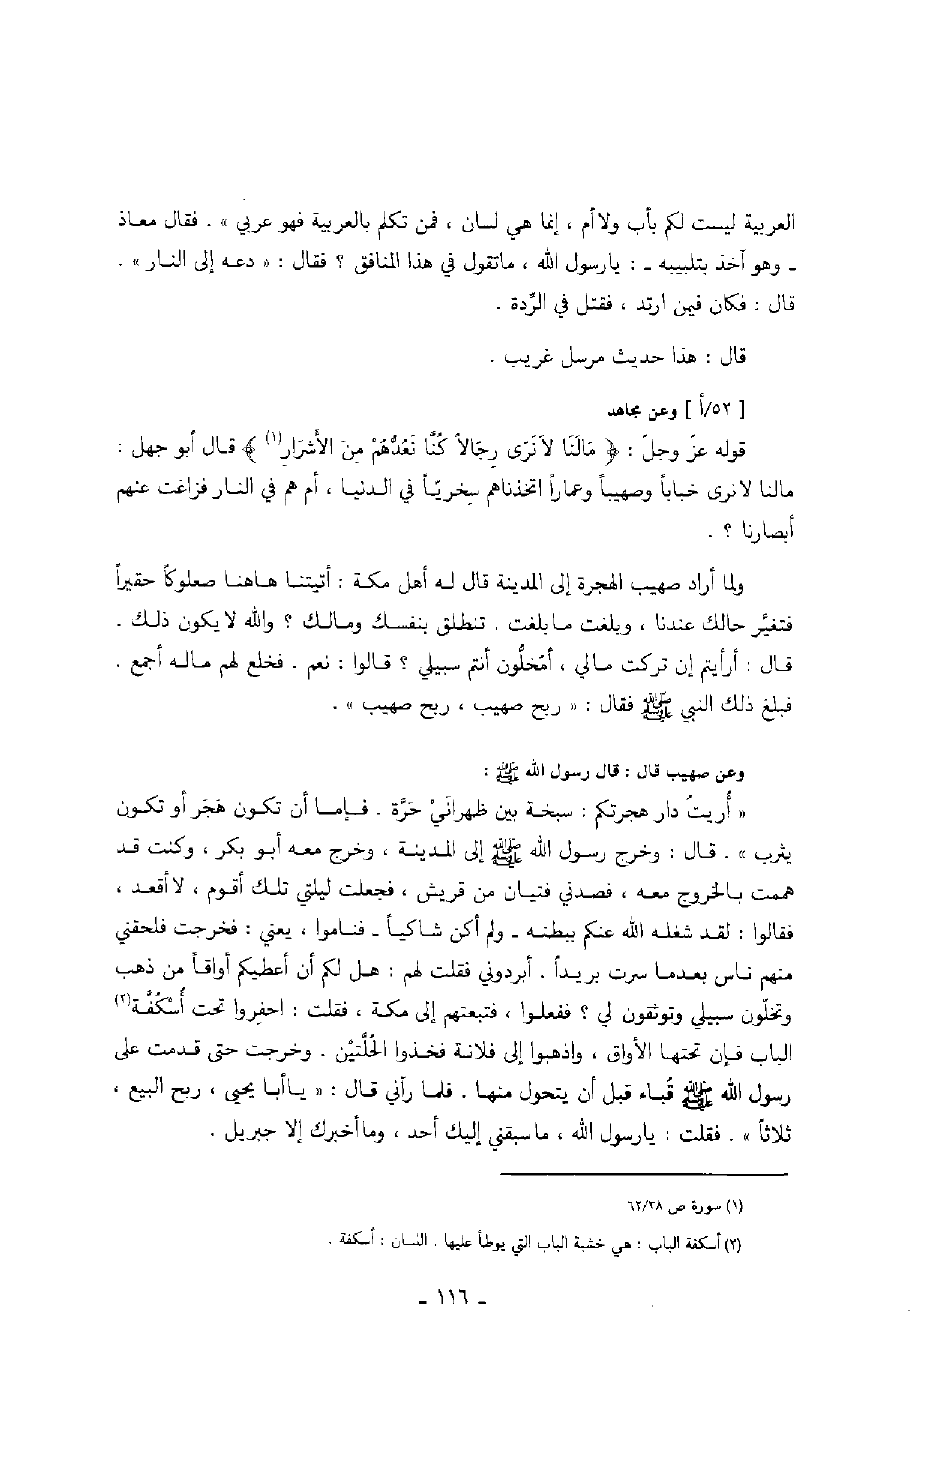 العربية ليست لكم بأب ولاأم ، إنما هي لسان ، فمن تكلم بالعربية فهو عربي » . فقال معاذ
ـ وهو آخذ بتلبيبه ـ : يارسول الله ، ماتقول في هذا المنافق ؟ فقال : « دعه إلى النار » .
قال : فكان فيمن ارتد ، فقتل في الرِّدة .
قال : هذا حديث مرسل غريب .
[ ٥٢/أ ] وعن مجاهد
قوله عزّ وجلّ : ﴿ مَالَنَا لاَنَرَى رِجَالاً كُنَّا نَعُدُّهُمْ مِنَ الأَشْرَارِ(١) ﴾ قال أبو جهل :
مالنا لانرى خباباً وصهيباً وعماراً اتخذناهم سِخريّاً في الدنيا ، أم هم في النار فزاغت عنهم
أبصارنا ؟ .
ولما أراد صهيب الهجرة إلى المدينة قال له أهل مكة : أتيتنا هاهنا صعلوكاً حقيراً
فتغيَّر حالك عندنا ، وبلغت مابلغت . تنطلق بنفسك ومالك ؟ والله لايكون ذلك .
قال : أرأيتم إن تركت مالي ، أمُخلُّون أنتم سبيلي ؟ قالوا : نعم . فخلع لهم ماله أجمع .
فبلغ ذلك النبي ﷺ فقال : « ربح صهيب ، ربح صهيب » .
وعن صهيب قال : قال رسول الله ﷺ :
« أُريتُ دار هجرتكم : سبخة بين ظهرانَيْ حَرَّة . فإما أن تكون هَجَر أو تكون
يثرب » . قال : وخرج رسول الله ﷺ إلى المدينة ، وخرج معه أبو بكر ، وكنت قد
هممت بالخروج معه ، فصدني فتيان من قريش ، فجعلت ليلتي تلك أقوم ، لاأقعد ،
فقالوا : لقد شغله الله عنكم ببطنه ـ ولم أكن شاكياً ـ فناموا ، يعني : فخرجت فلحقني
منهم ناس بعدما سرت بريداً . أبردوني فقلت لهم : هل لكم أن أعطيكم أواقاً من ذهب
وتخلّون سبيلي وتوثقون لي ؟ ففعلوا ، فتبعتهم إلى مكة ، فقلت : احفِروا تحت أُسْكُفَّة(٢)
الباب فإن تحتها الأواق ، واذهبوا إلى فلانة فخذوا الحُلَّتيْن . وخرجت حتى قدمت على
رسول الله ﷺ قُباء قبل أن يتحول منها . فلما رآني قال : « ياأبا يحيى ، ربح البيع ،
ثلاثاً » . فقلت : يارسول الله ، ماسبقني إليك أحد ، وماأخبرك إلا جبريل .
(١) سورة ص ٦٢/٣٨
(٢) أسكفة الباب : هي خشبة الباب التي يوطأ عليها . اللسان : أسكفة .
ـ ١١٦ ـ